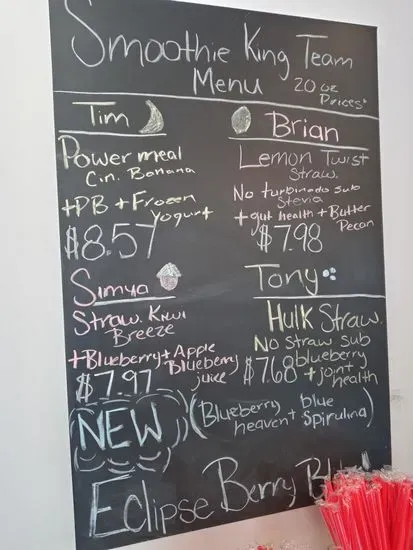 Smoothie King Team
Menu
20 oz
Prices*
Tim
Power meal
Cin. Banana
+PB + Frozen
Yogurt
$8.57
Brian
Lemon Twist
Straw.
No turbinado sub
Stevia
+ gut health + Butter
Pecan
$7.98
Simya
Straw. Kiwi
Breeze
+Blueberry + Apple
Blueberry
juice
$7.97
Tony
Hulk Straw.
No straw sub
blueberry
+ joint
health
$7.68
NEW
(Blueberry
heaven + blue
Spirulina)
Eclipse Berry